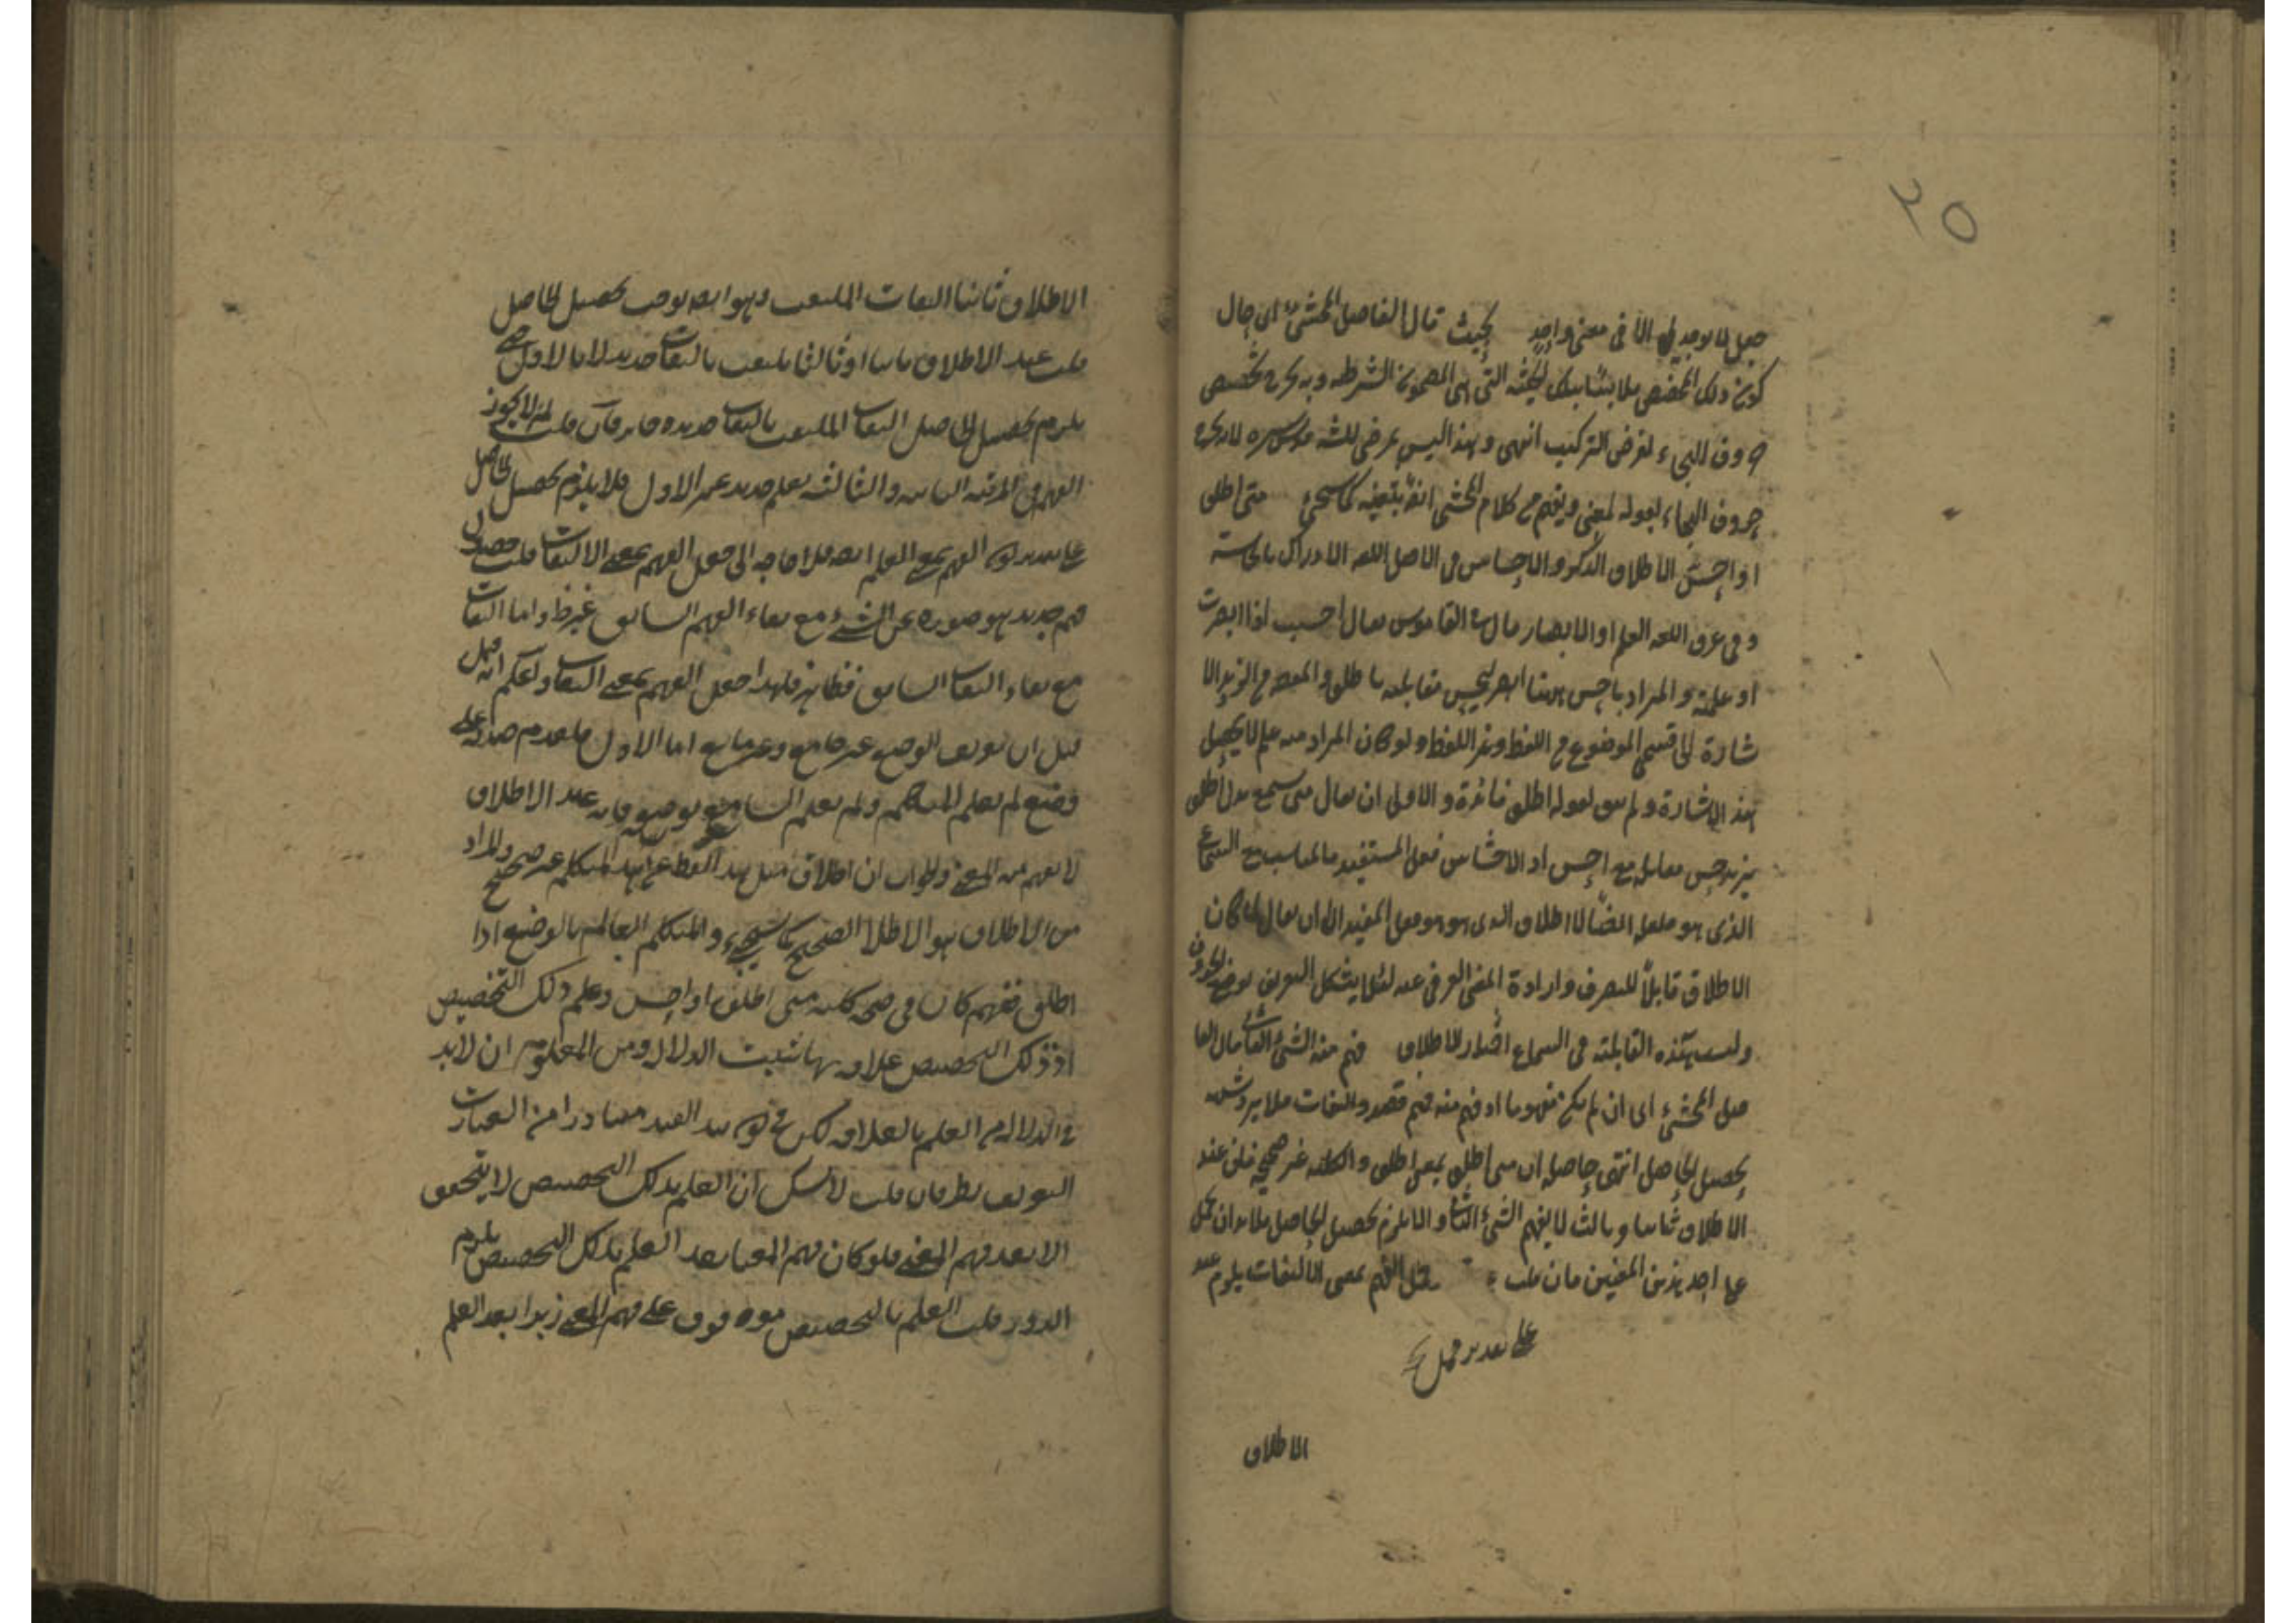 ٢٥
جعل لما يوجد الا فى معنى واحد بحيث قال الفاضل المحشى اى حال
كون ذلك التخصيص ملابسا بتلك الحيثية التى هى المضمون الشرطية وبه يخرج تخصيص
حروف الهجاء لغرض التركيب انتهى وهذا ليس بمرضى للشارح قدس سره لاخراجه
حروف الهجاء بقوله لمعنى ويفهم من كلام المحشى انفا بتعينه كما سيجئ متى اطلق
او احس الاطلاق الذكر والاحساس فى الاصل اللغة الادراك بالحاسة
وفى عرف اللغة العلم او الابصار قال فى القاموس يقال احسست اذا ابصرت
او علمته والمراد باحس ههنا ابصر مقابلته باطلق والمقصود من الترديد الا
شارة الى قسمى الموضوع من اللفظ وغير اللفظ ولو كان المراد منه علم لا يحصل
هذه الاشارة ولم يبق لقوله اطلق فائدة والاولى ان يقال متى سمع بدل اطلق
ليزدوج مقابله مع احس اذ الاحساس فعل المستفيد فالمناسب مع السماع
الذى هو فعله ايضا لا اطلاق الذى هو فعل المفيد الا ان يقال لما كان
الاطلاق قابلا للصرف وارادة المعنى العرفى عنه لئلا يشكل التعريف بوضع الحروف
وليست هذه القابلية فى السماع اختار الاطلاق فهم منه الشئ الثانى قال الفا
ضل المحشى اى ان لم يكن مفهوما او فهم منه فهم قصد والتفات فلا يرد شبهة
تحصيل الحاصل انتهى حاصله ان متى اطلق بمعنى اطلق والكلية غير صحيحة فان عند
الاطلاق ثانيا وثالثا لا يفهم الشئ الثانى والا يلزم تحصيل الحاصل فلا بد ان يحمل
على احد هذين المعنيين فان قلت حمل الفهم بمعنى الالتفات يلزم عند
على تقدير حمل
الاطلاق
الاطلاق ثانيا التفات الملتفت وهو ايضا يوجب تحصيل الحاصل
قلت عند الاطلاق ثانيا او ثالثا يلتفت بالتفات جديد لا بالاول حتى
يلزم تحصيل الحاصل التفات الملتفت بالتفات جديد وجائز فان قلت لم لا يجوز
الفهم فى المرتبة الثانية والثالثة بعلم جديد غير الاول فلا يلزم تحصيل الحاصل
على تقدير كون الفهم بمعنى العلم ايضا فلا حاجة الى جعل الفهم بمعنى الالتفات قلت حصول
فهم جديد هو صورة عن الشئ مع بقاء الفهم السابق غير ظ واما التفات
مع بقاء التفات السابق فظاهر فلهذا جعل الفهم بمعنى التفات واعلم انه قيل
قيل ان تعريف الوضع غير جامع وغير مانع اما الاول فلعدم صدقه على
وضع لم يعلم المتكلم ولم يعلم السامع بوضعه فانه عند الاطلاق
لا يفهم منه المعنى والجواب ان اطلاق مثل هذا اللفظ عن هذا المتكلم غير صحيح والمراد
من الاطلاق هو الاطلاق الصحيح كما سيجئ والمتكلم العالم بالوضع اذا
اطلق ففهم كان فى صحة كلية متى اطلق او احس وعلم ذلك التخصيص
اذ ذلك التخصيص علاقة بها تثبت الدلالة ومن المعلوم ان لا بد
فى الدلالة من العلم بالعلاقة لكن فى كون هذا القيد متبادرا من العبارت
التعريف نظر فان قلت لا شك ان العلم بذلك التخصيص لا يتحقق
الا بعد فهم المعنى فلو كان فهم المعنى بعد العلم بذلك التخصيص يلزم
الدور قلت العلم بالتخصيص موقوف على فهم المعنى زيدا بعد العلم